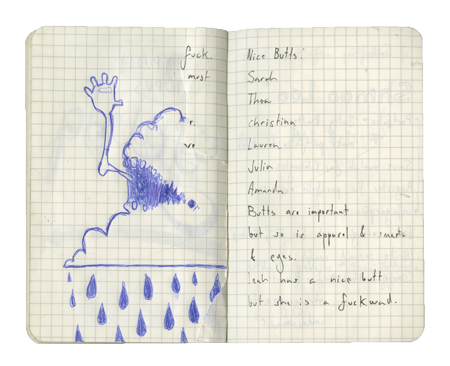 fuck
most
r.
vo
Nice Butts:
Sarah
Thea
christina
Lauren
Julia
Amanda
Butts are important
but so is apparel & smarts
& eyes.
Leah has a nice butt
but she is a fuckwad.